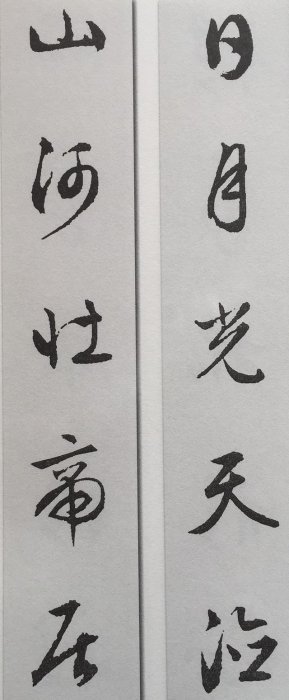 日月光天德
山河壮帝居